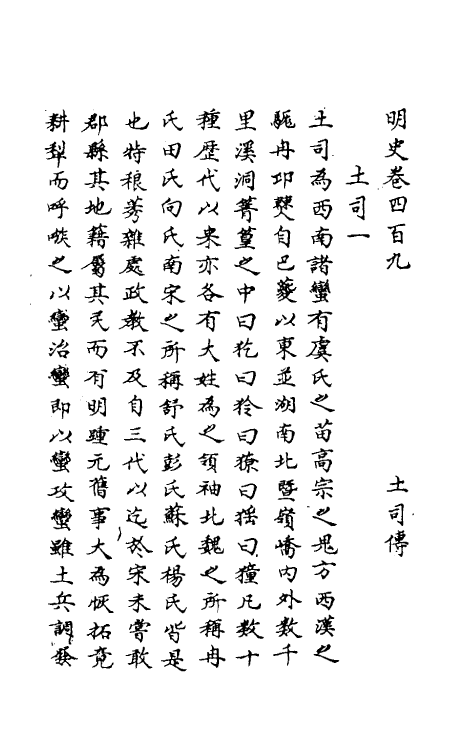 明史卷四百九 土司傳
土司一
土司為西南諸蠻有虞氏之苗高宗之鬼方西漢之
駹冉邛僰自巴夔以東並湖南北暨嶺嶠內外数千
里溪洞箐篁之中曰犵曰狑曰獠曰猺曰獞凡数十
種歴代以來亦各有大姓為之領袖北魏之所稱冉
氏田氏向氏南宋之所稱舒氏彭氏蘇氏楊氏皆是
也特稂莠雜處政教不及自三代以迄於宋未嘗敢
郡縣其地籍屬其民而有明踵元舊事大為恢拓竟
耕犁而呼嗾之以蠻治蠻即以蠻攻蠻雖土兵調發